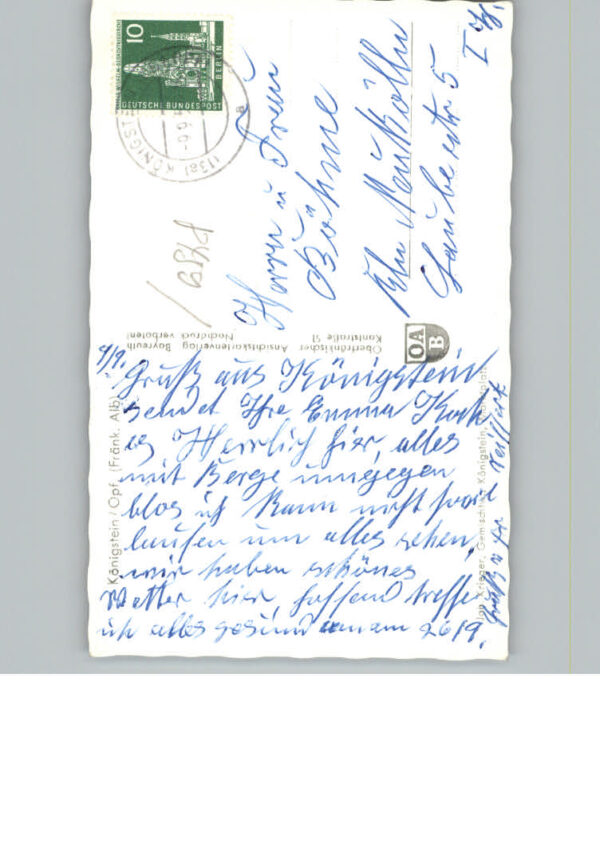 10
DEUTSCHE BUNDESPOST
BERLIN
(13a) KÖNIGSTE
a
Herrn u Frau
Böhme
Bln Neukölln
Laubestr 5
I
Oberfränkischer Ansichtskartenverlag Bayreuth
Kantstraße 51 Nachdruck verboten!
OA
B
Königstein/Opf. (Fränk. Alb)
9/9.
Gruß aus Königstein
sendet Ihre Emma Koch
es Herrlich hier, alles
mit Berge umgegen
blos ich kann nicht soviel
laufen um alles sehen,
wir haben schönes
Wetter hier, hoffend treffe
ich alles gesund an am 26/9.
Krieger, Gemischtw. Königstein,